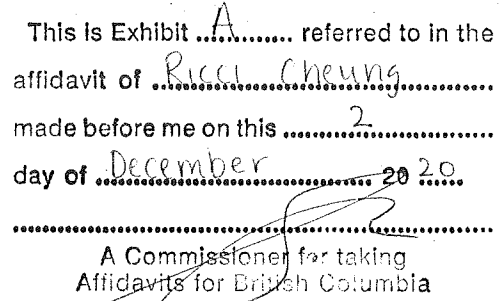 This is Exhibit ..A......... referred to in the
affidavit of ..Ricci Cheung..............
made before me on this ............2..................
day of ..December................. 20 20...
........................................................................
A Commissioner for taking
Affidavits for British Columbia